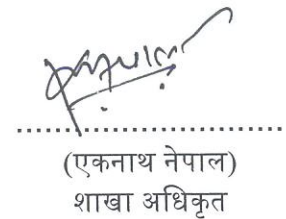 ..........................................
(एकनाथ नेपाल)
शाखा अधिकृत